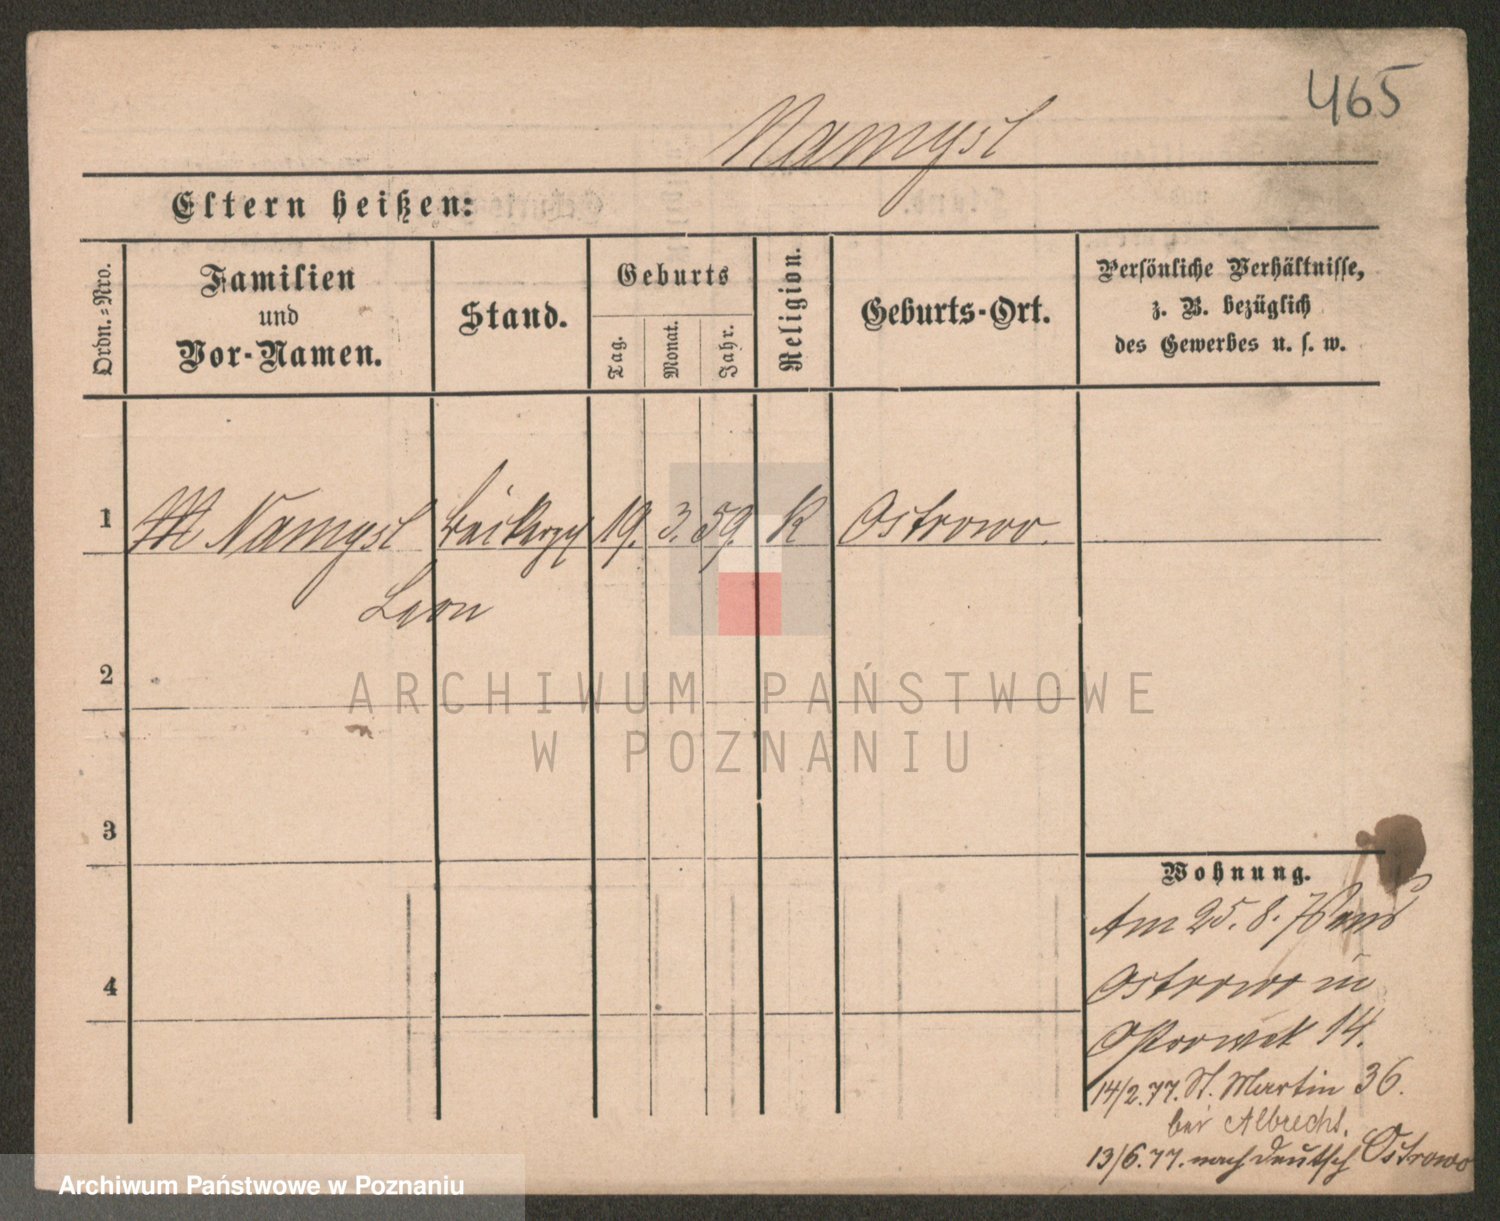 465
Namysl
Eltern heißen:
Ordn.=Nro.
Familien
und
Vor-Namen.
Stand.
Geburts
Tag.
Monat.
Jahr.
Religion.
Geburts-Ort.
Persönliche Verhältnisse,
z. B. bezüglich
des Gewerbes u. s. w.
1 Namysl 19. 3. 59. K Ostrowo.
Leon
2
3
4
Wohnung.
Am 25. 8. 76 aus
Ostrowo in
Ostrowek 14.
14/2.77. St. Martin 36.
bei Albrecht.
13/6.77. nach Deutsch Ostrowo
ARCHIWUM PAŃSTWOWE
W POZNANIU
Archiwum Państwowe w Poznaniu